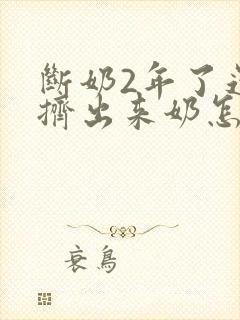 斷奶2年了還
擠出來奶怎
衰鳥